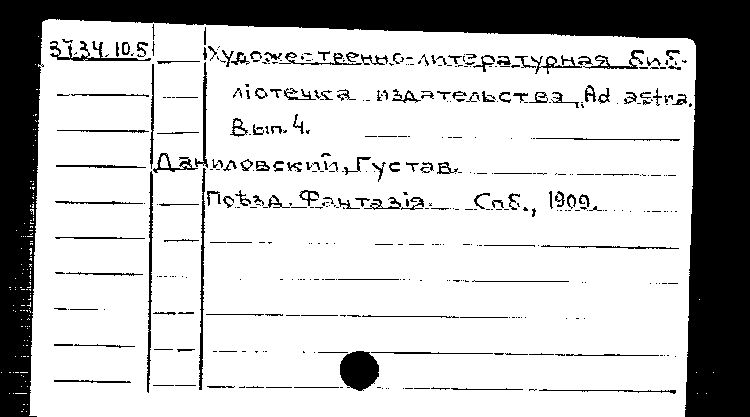 37.34.10.5
Художественно-литературная биб-
ліотечка издательства „Ad astra.
Вып. 4.
Даниловский, Густав.
Поѣзд. Фантазія. Спб., 1909.